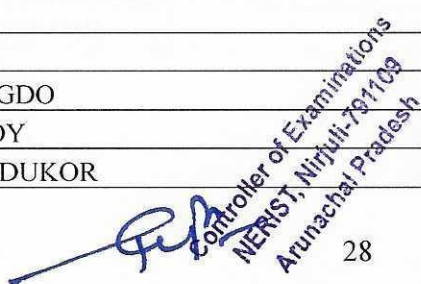 GDO
OY
DUKOR
Controller of Examinations
NERIST, Nirjuli-791109
Arunachal Pradesh
28